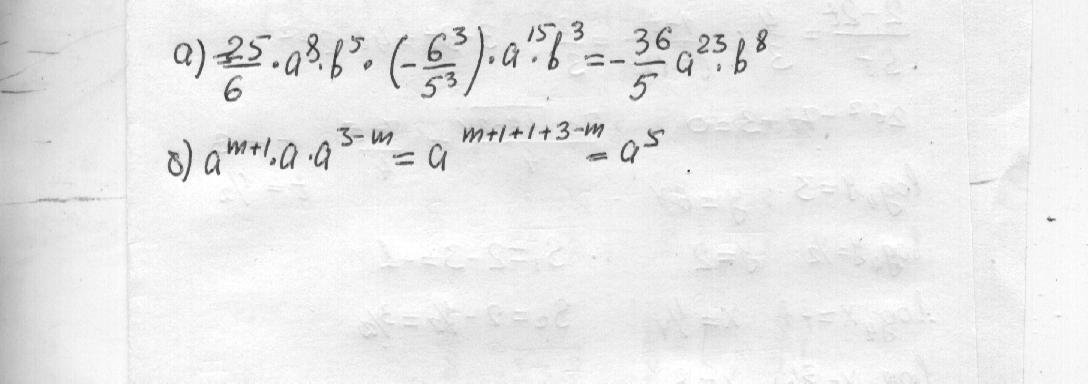 а) 25/6 · a⁸ · b⁵ · (- 6³/5³) · a¹⁵ · b³ = - 36/5 a²³ · b⁸
б) aᵐ⁺¹ · a · a³⁻ᵐ = aᵐ⁺¹⁺¹⁺³⁻ᵐ = a⁵.